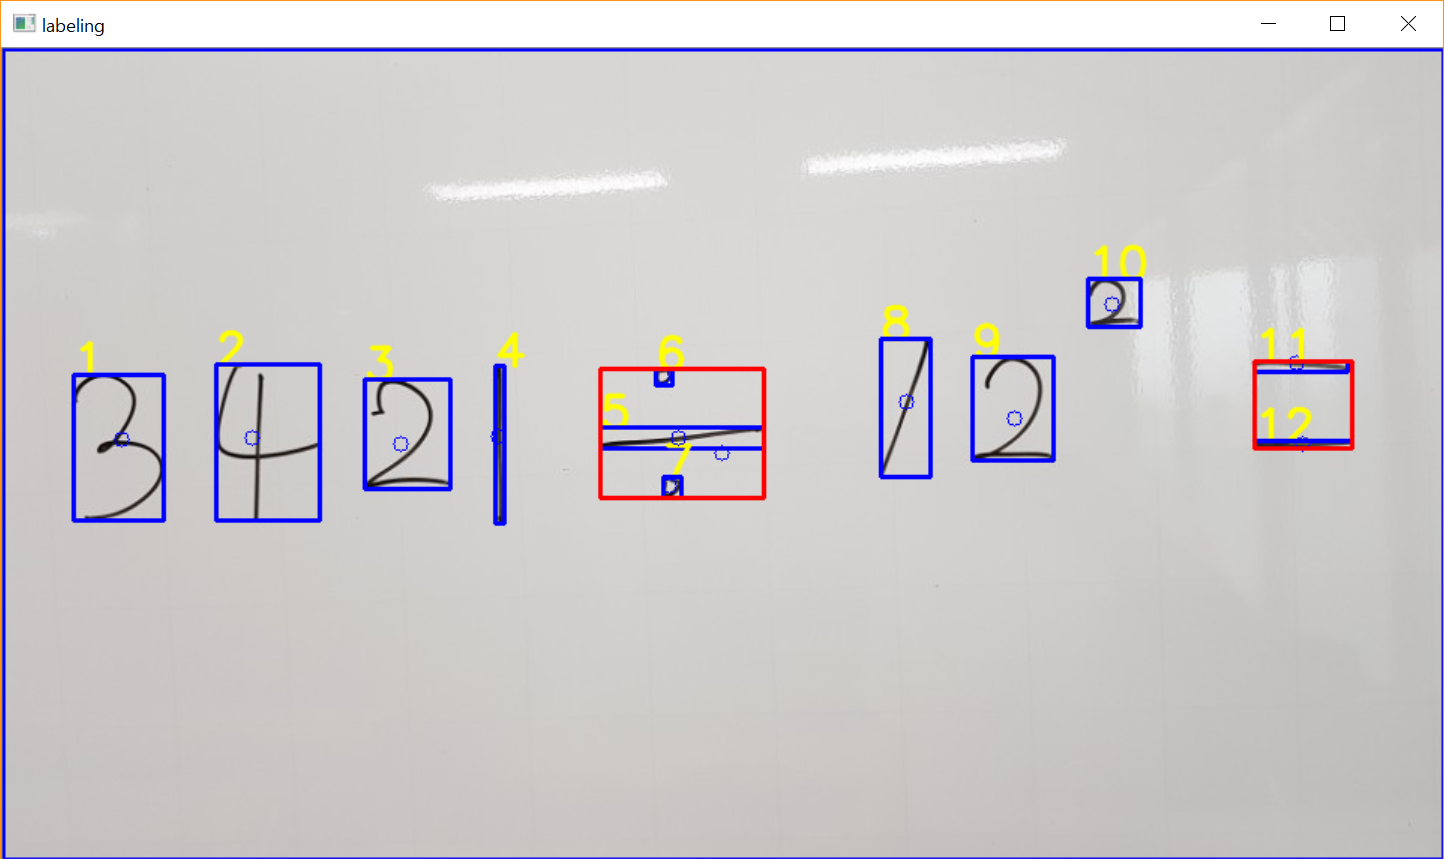 labeling
1 2 3 4 5 6 7 8 9 10 11 12
3421 ÷ 12² =